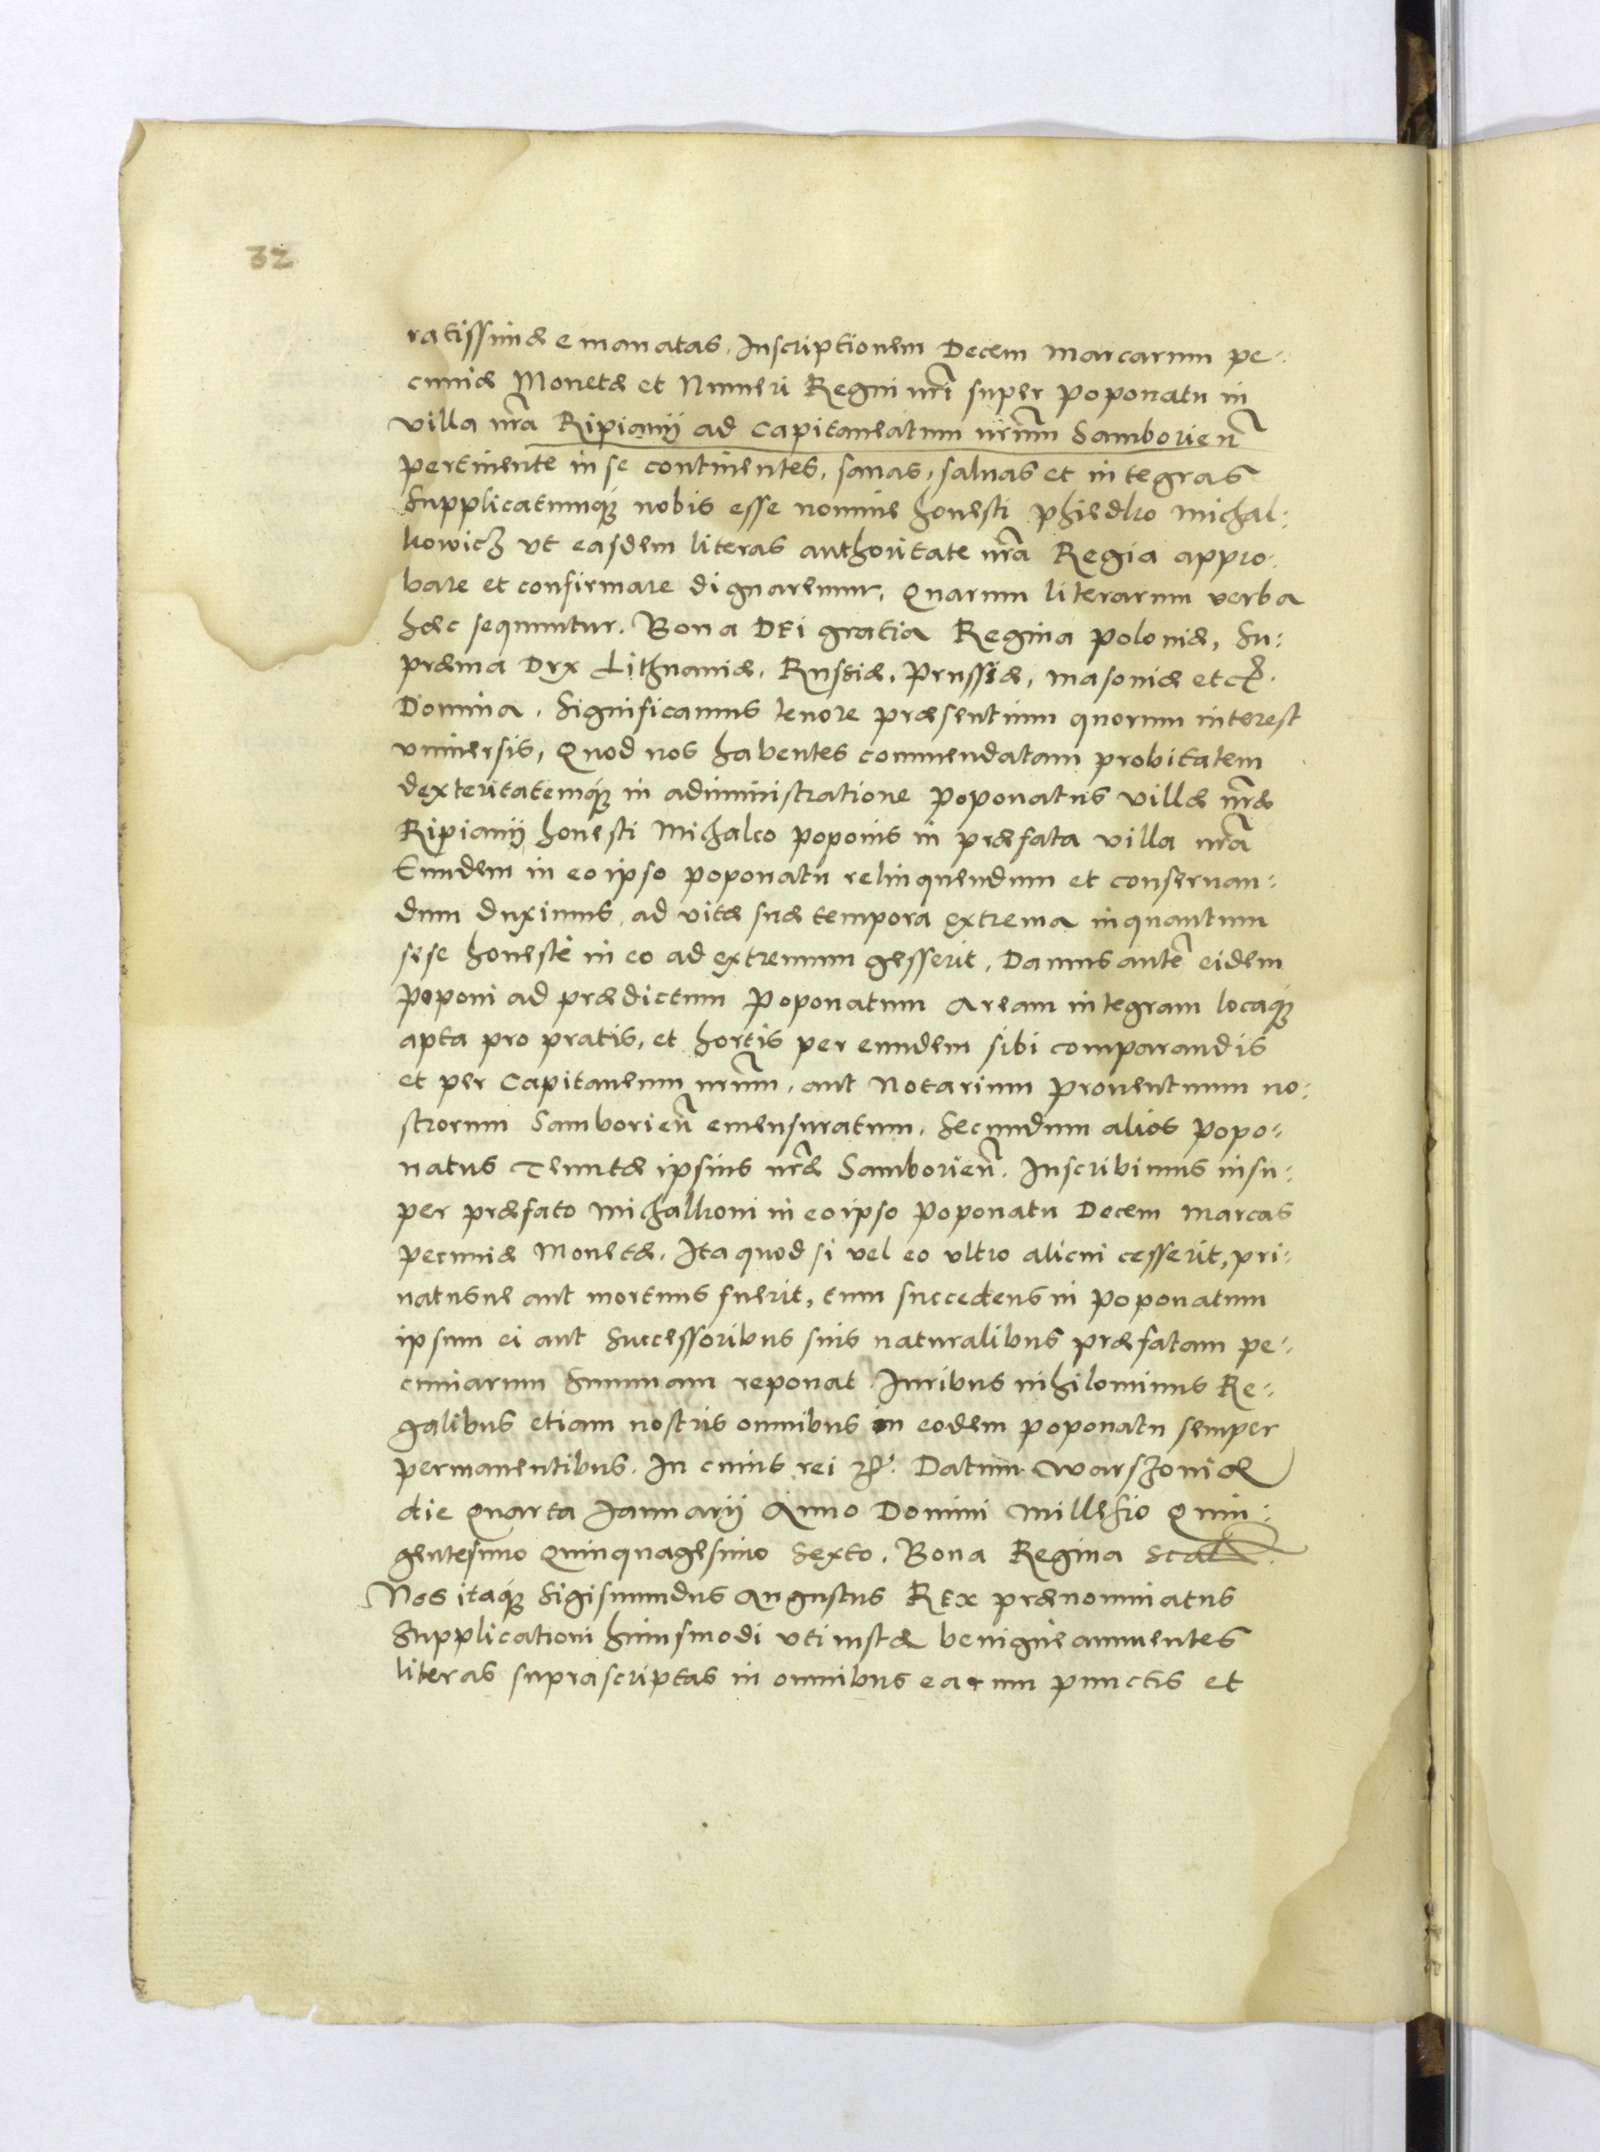 32
ratissimæ emanatas. Inscriptionem Decem marcarum pe:
cuniæ Monetæ et Numeri Regni nr̃i super Poponatu in
villa nr̃a Ripianÿ ad Capitaneatum nr̃um Samborieñ
pertinente in se continentes, sanas, saluas et integras
Supplicatumq̨ nobis esse nomine honesti Phiedko Michal:
kowicz vt easdem literas authoritate nr̃a Regia appro:
bare et confirmare dignaremur. Quarum literarum verba
hæc sequuntur. Bona DEi gratia Regina Poloniæ, Su:
præma Dux Lithuaniæ, Russiæ, Prussiæ, Masoniæ etc̃.
Domina. Significamus tenore præsentium quorum interest
vniuersis, Quod nos habentes commendatam probitatem
dexteritatemq̨ in administratione Poponatus villæ nr̃æ
Ripianÿ honesti Michalco poponis in præfata villa nr̃a
Eundem in eo ipso poponatu relinquendum et conseruan:
dum duximus, ad vitæ suæ tempora extrema inquantum
sese honeste in eo ad extremum gesserit. Damus autẽ eidem
Poponi ad prædictum Poponatum Aream integram locaq̨
apta pro pratis, et hortis per eundem sibi comparandis
et per Capitaneum nr̃um, aut Notarium Prouentuum no:
strorum Samborieñ emensuratum, secundum alios popo:
natus Tenutæ ipsius nr̃æ Samborieñ. Inscribimus insu:
per præfato Michalkoni in eo ipso Poponatu Decem Marcas
pecuniæ Monetæ. Ita quod si vel eo vltro alicui cesserit, pri:
uatusue aut mortuus fuerit, tum succedens in Poponatum
ipsum ei aut Successoribus suis naturalibus præfatam pe:
cuniarum Summam reponat. Iuribus nihilominus Re:
galibus etiam nostris omnibus in eodem poponatu semper
permanentibus. In cuius rei etc̃. Datum Warszouiæ
die Quarta Januarÿ Anno Domini Millesio Quin:
gentesimo Quinquagesimo Sexto. Bona Regina
Nos itaq̨ Sigismundus Augustus REx prænominatus
Supplicationi huiusmodi vti iustæ benigne annuentes
literas suprascriptas in omnibus earum punctis et